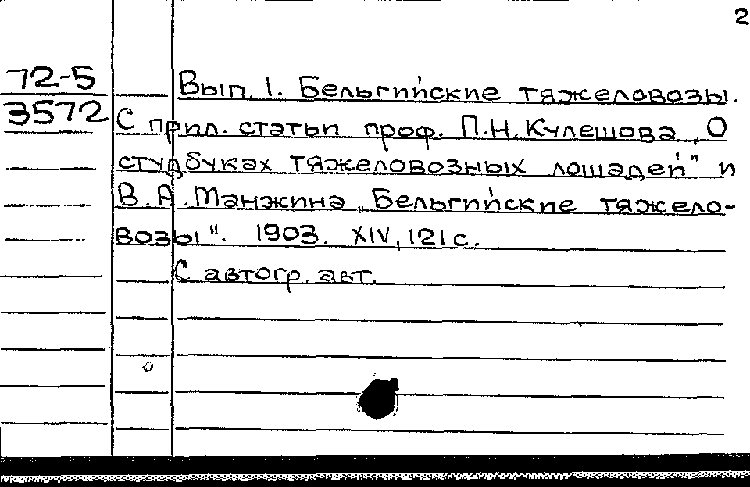 2
72-5
3572
Вып. 1. Бельгийские тяжеловозы.
С прил. статьи проф. П.Н. Кулешова „О
студбуках тяжеловозных лошадей" и
В.А. Манжина „Бельгийские тяжело-
возы". 1903. XIV, 121 с.
С автогр. авт.